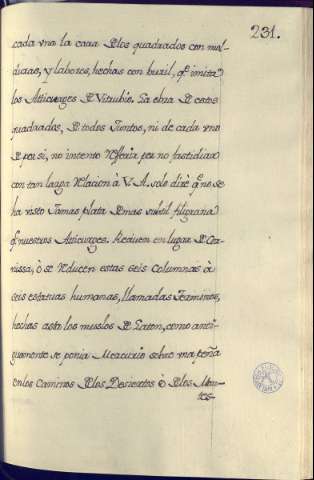 231.
cada vna la cara Delos quadrados con mol-
duras, y labores, hechas con buril, q̃ imita
los Atticurges De Vitrubio. La obra De estos
quadrados, De todos Juntos, ni de cada vno
De por si, no intento Referir por no fastidiar
con tan larga Relacion à V. A. solo dirè q̃ no se
ha visto Jamas plata De mas subtil filigrana
q̃ nuestros Aticurges.
en lugar De
ò se Reducen estas seis Columnas à
seis estatuas humanas, llamadas Terminos,
hechas asta los muslos De como anti-
guamente se ponia Mercurio sobre vna peña
en los Caminos Delos Desiertos ò Delos Mon-
tes-